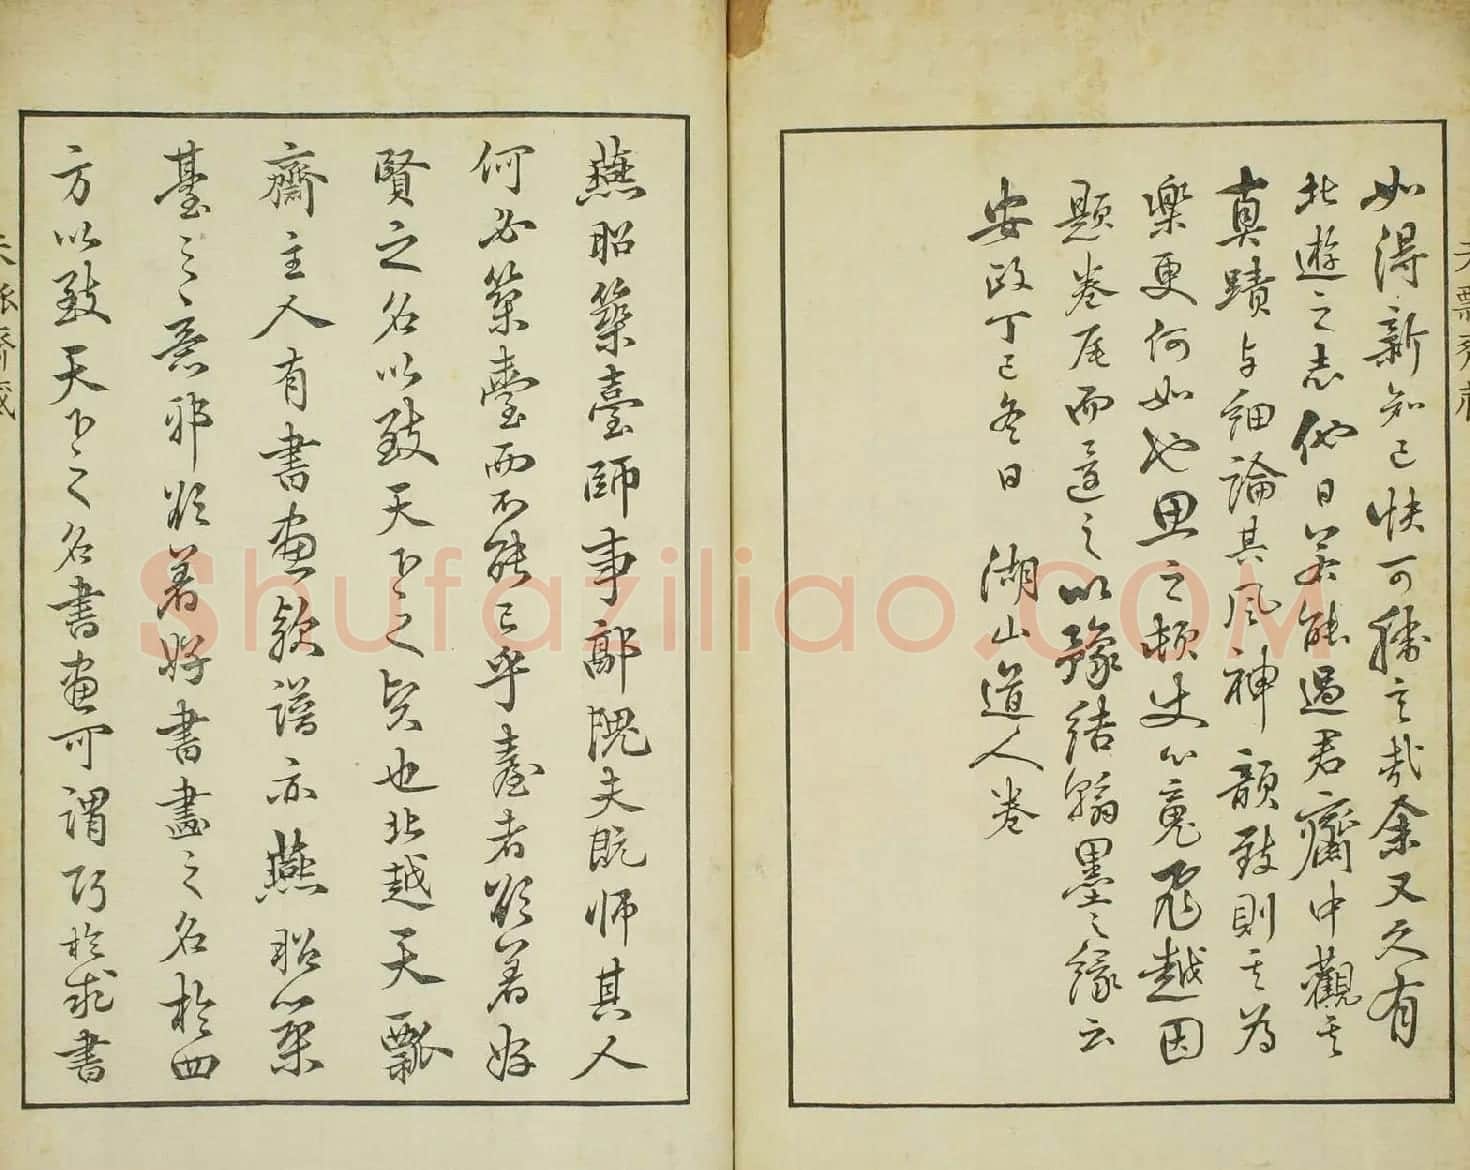 如得新知己快可勝言哉余又久有
北遊之志他日若能過君齋中觀其
真蹟与細論其風神韻致則其為
樂更何如也思之頓生心魂飛越因
題卷尾而還之以豫結翰墨之緣云
安政丁巳冬日 湖山道人卷
燕昭築臺師事郭隗夫既師其人
何必築臺而不能已乎臺者欲著好
賢之名以致天下之賢也北越天瓢
齋主人有書畫款譜亦燕昭築
臺之意邪欲著好書畫之名於四
方以致天下之名書畫可謂巧於求書
天瓢齋藏
Shufaziliao.COM